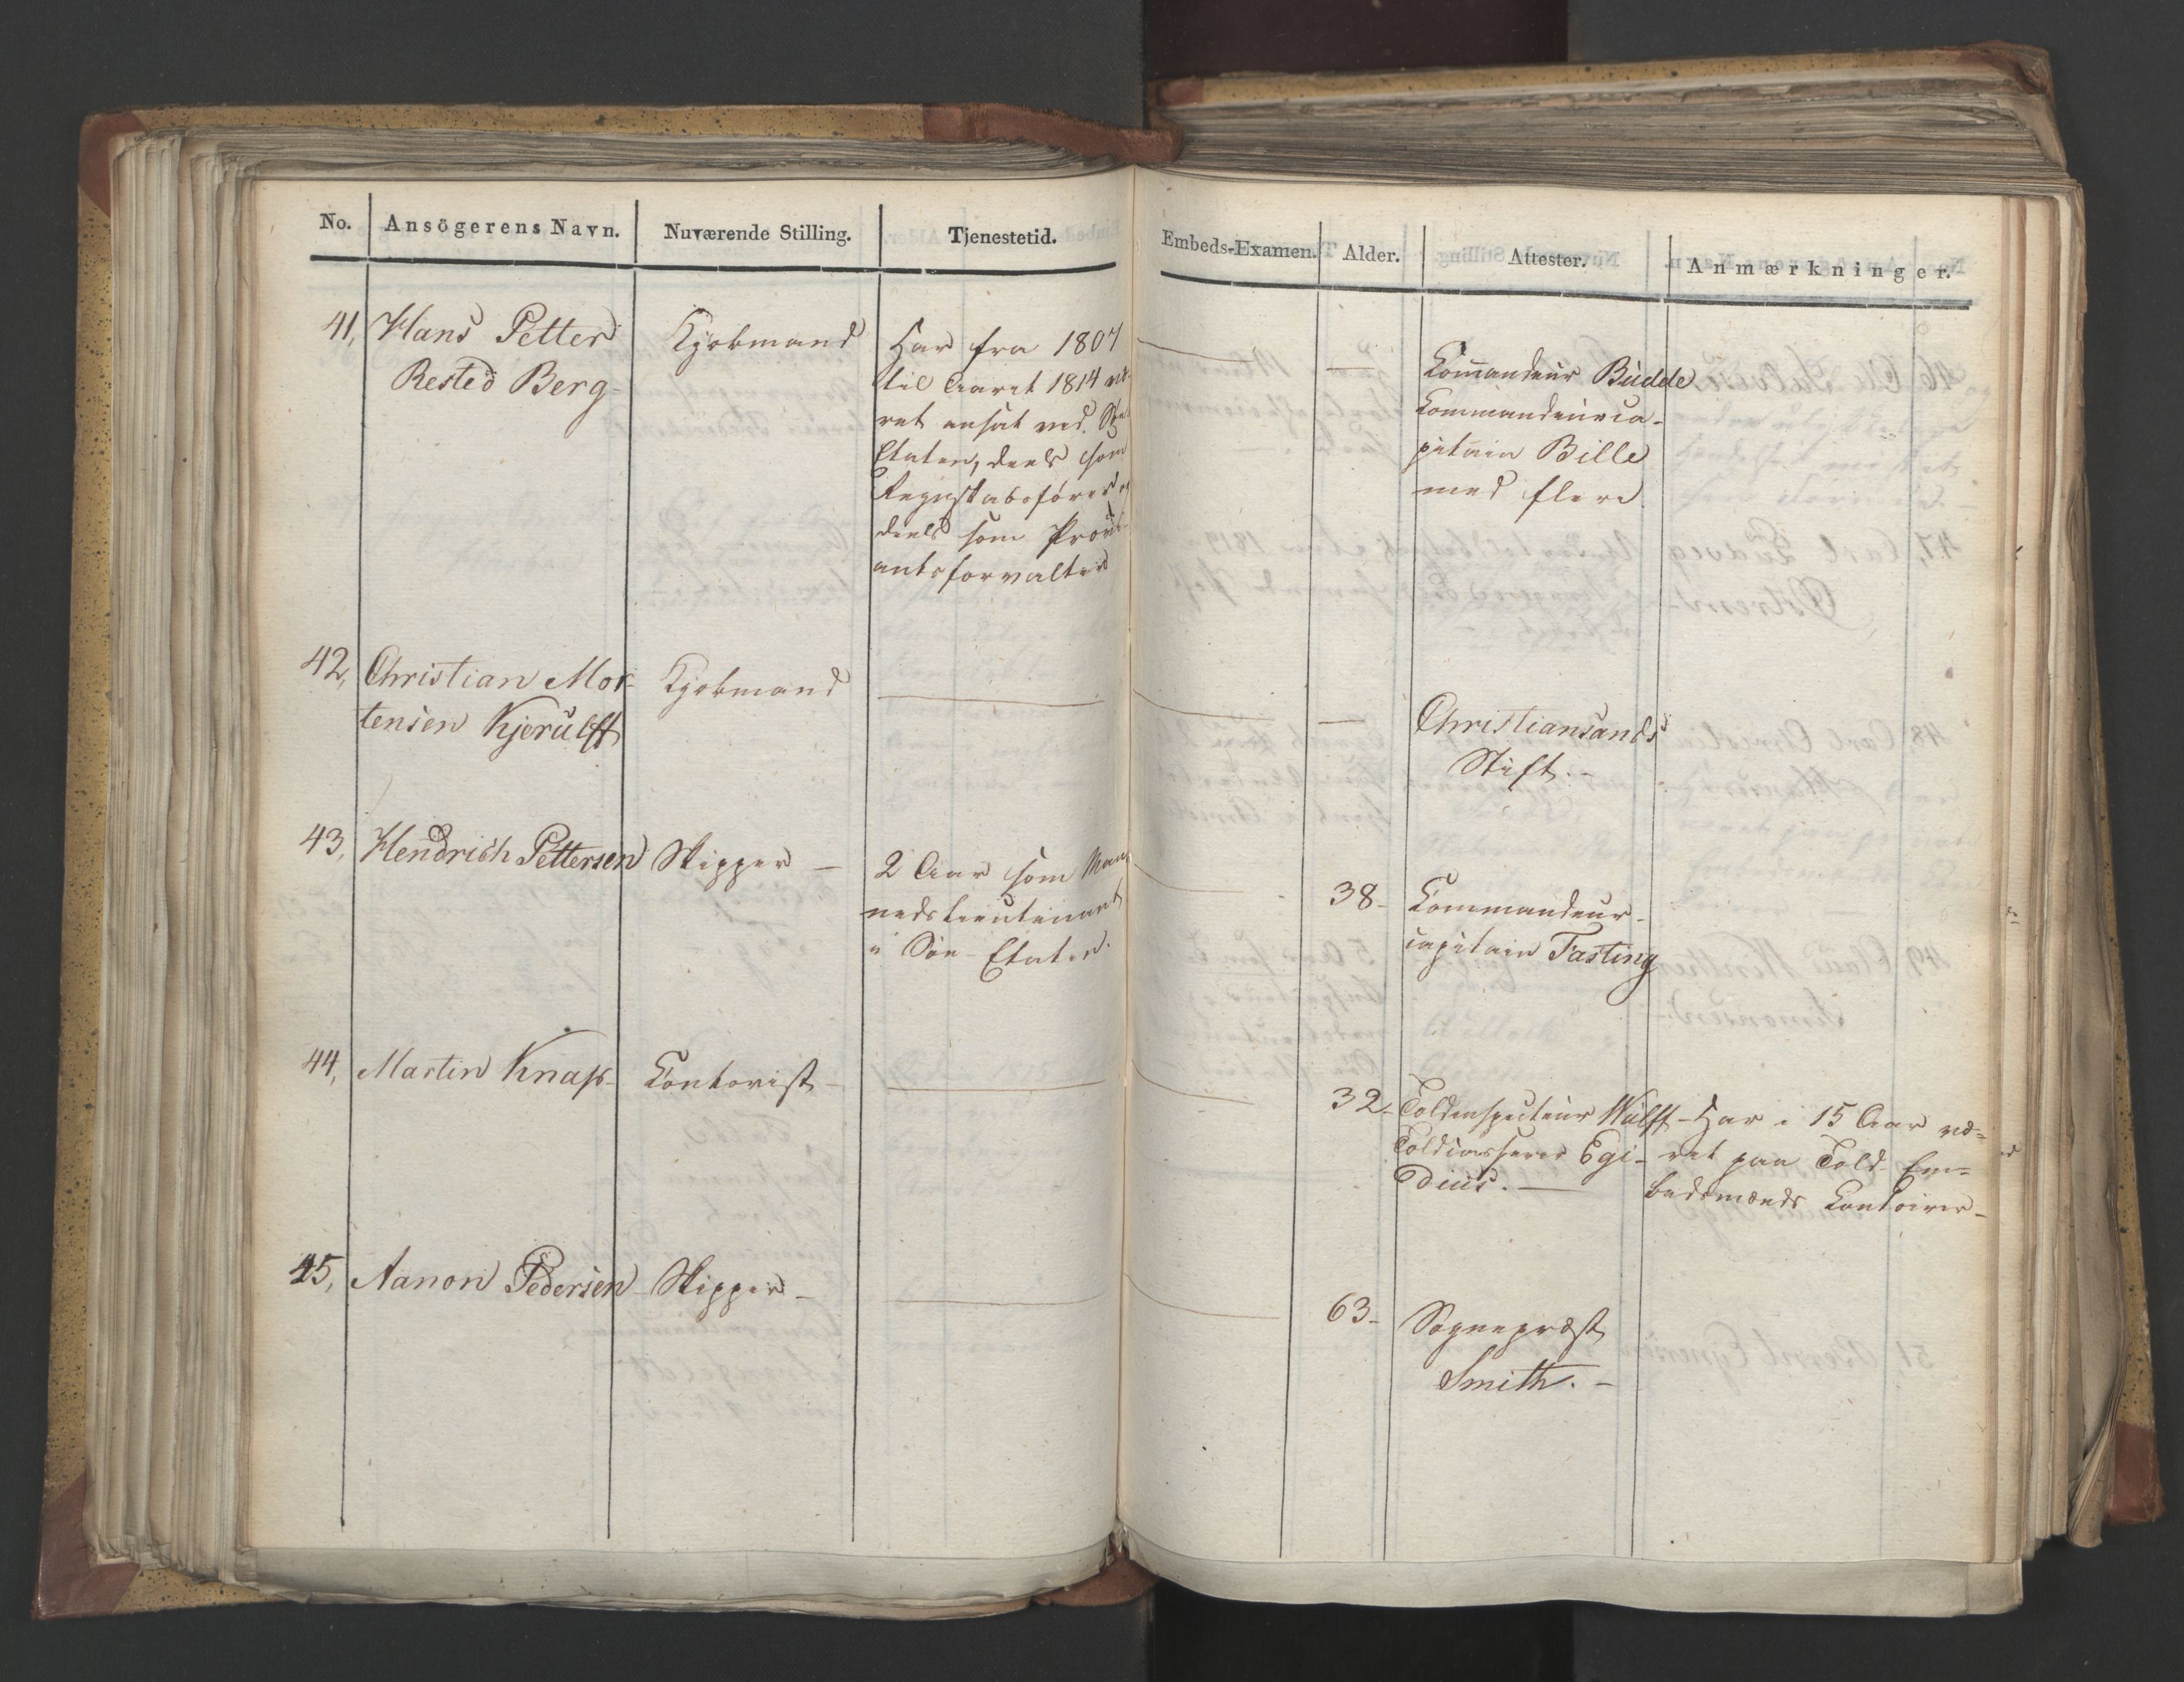 No. Ansögerens Navn. Nuværende Stilling. Tjenestetid. Embeds-Examen. Alder. Attester. Anmærkninger.
41, Hans Petter
Rested Berg-
Kjøbmand
Har fra 1807
til Aaret 1814 væ-
ret ansat ved Søe
Etaten, deels som
Regnskabsfører og
deels som Provi-
antsforvalter
—
Kommandeur Budde
Commandeurca-
pitain Bille
med flere
42, Christian Mor-
tensen Kjerulff
Kjøbmand
—
Christiansands
Stift.-
43, Hendrich Pettersen
Skipper —
2 Aar som Maa-
nedslieutenant
i Søe-Etaten.
38-
Commandeur-
capitain Fasting
44, Martin Knap-
Contorist-
32-
Toldinspecteur Wulff-
Toldcasserer Egi-
dius.—
Har i 15 Aar væ-
ret paa Told-Em-
bedsmænds Contoirer-
45, Aanon Pedersen
Skipper-
63-
Sognepræst
Smith.-